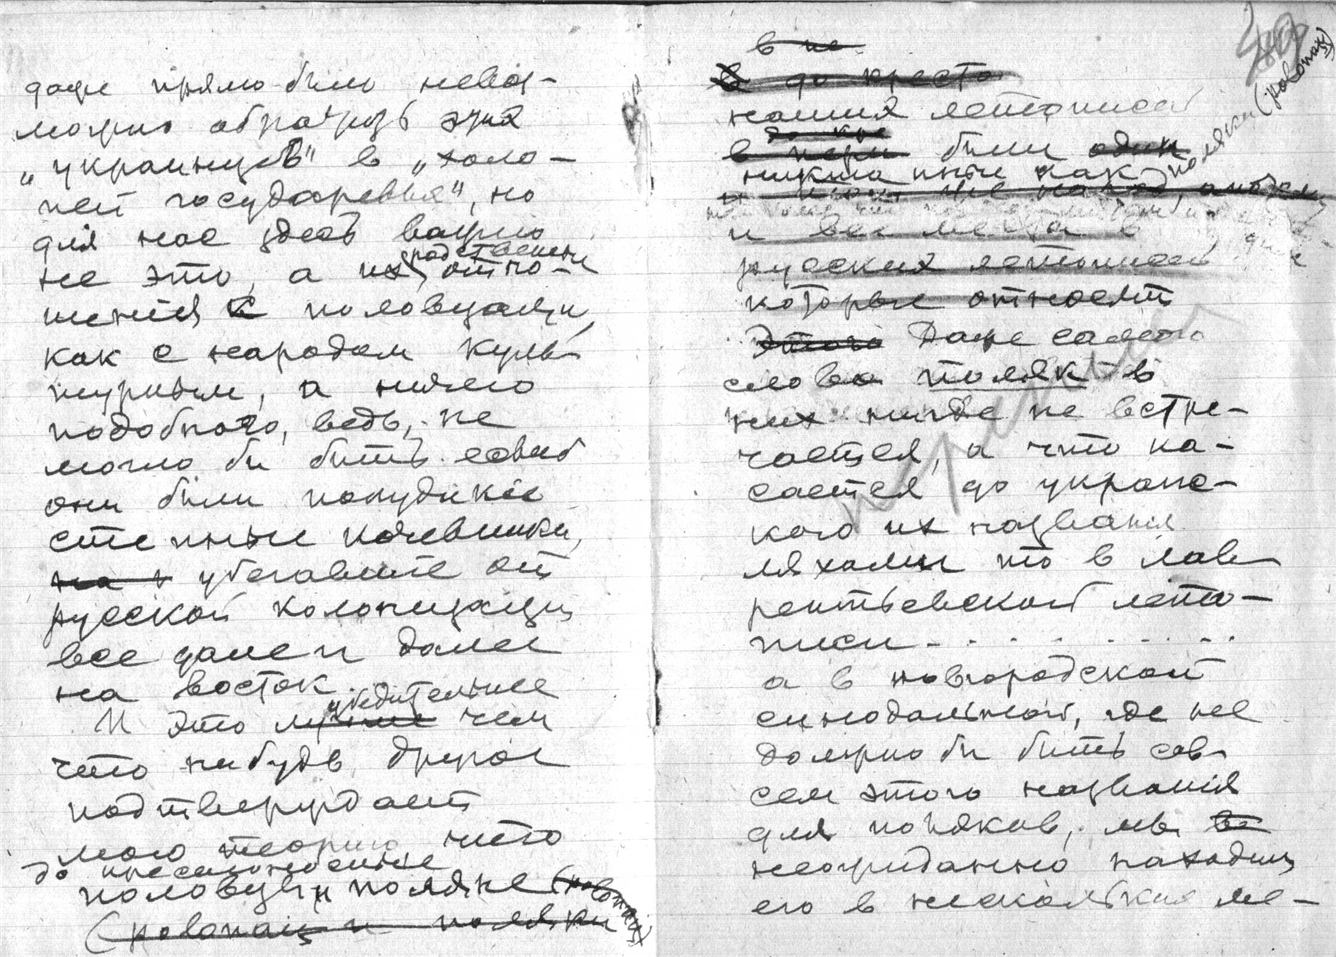 даже прямо было невоз-
можно обратить этих
„украинцев" в „холо-
пей государевых", но
для нас здесь важно
не это, а их родственны
отно-
шения с половцами,
как с народом куль-
турным, а ничего
подобного, ведь, не
могло бы быть еслиб
они были полудикие
степные кочевники,
убегавшие от
русской колонизации
все далее и далее
на восток.
И это убедительнее
лучше чем
что нибудь другое
подтверждает
мою теорию что
до крестоносные
половцы и поляне
и поляки
в не
в до кресто
наших летописей
в были один
никто иные как поляки
и все места в
русских летописей
которые относят
Этого Даже самого
слова поляк в
них нигде не встре-
чается, а что ка-
сается до украин-
кого их названия
ляхами то в лав-
рентьевской лето-
писи - . . . . . . . .
а в новгородской
синодальной, где не
должно бы быть сов-
сем этого названия
для поляков, мы
неожиданно находим
его в нескольких ме-